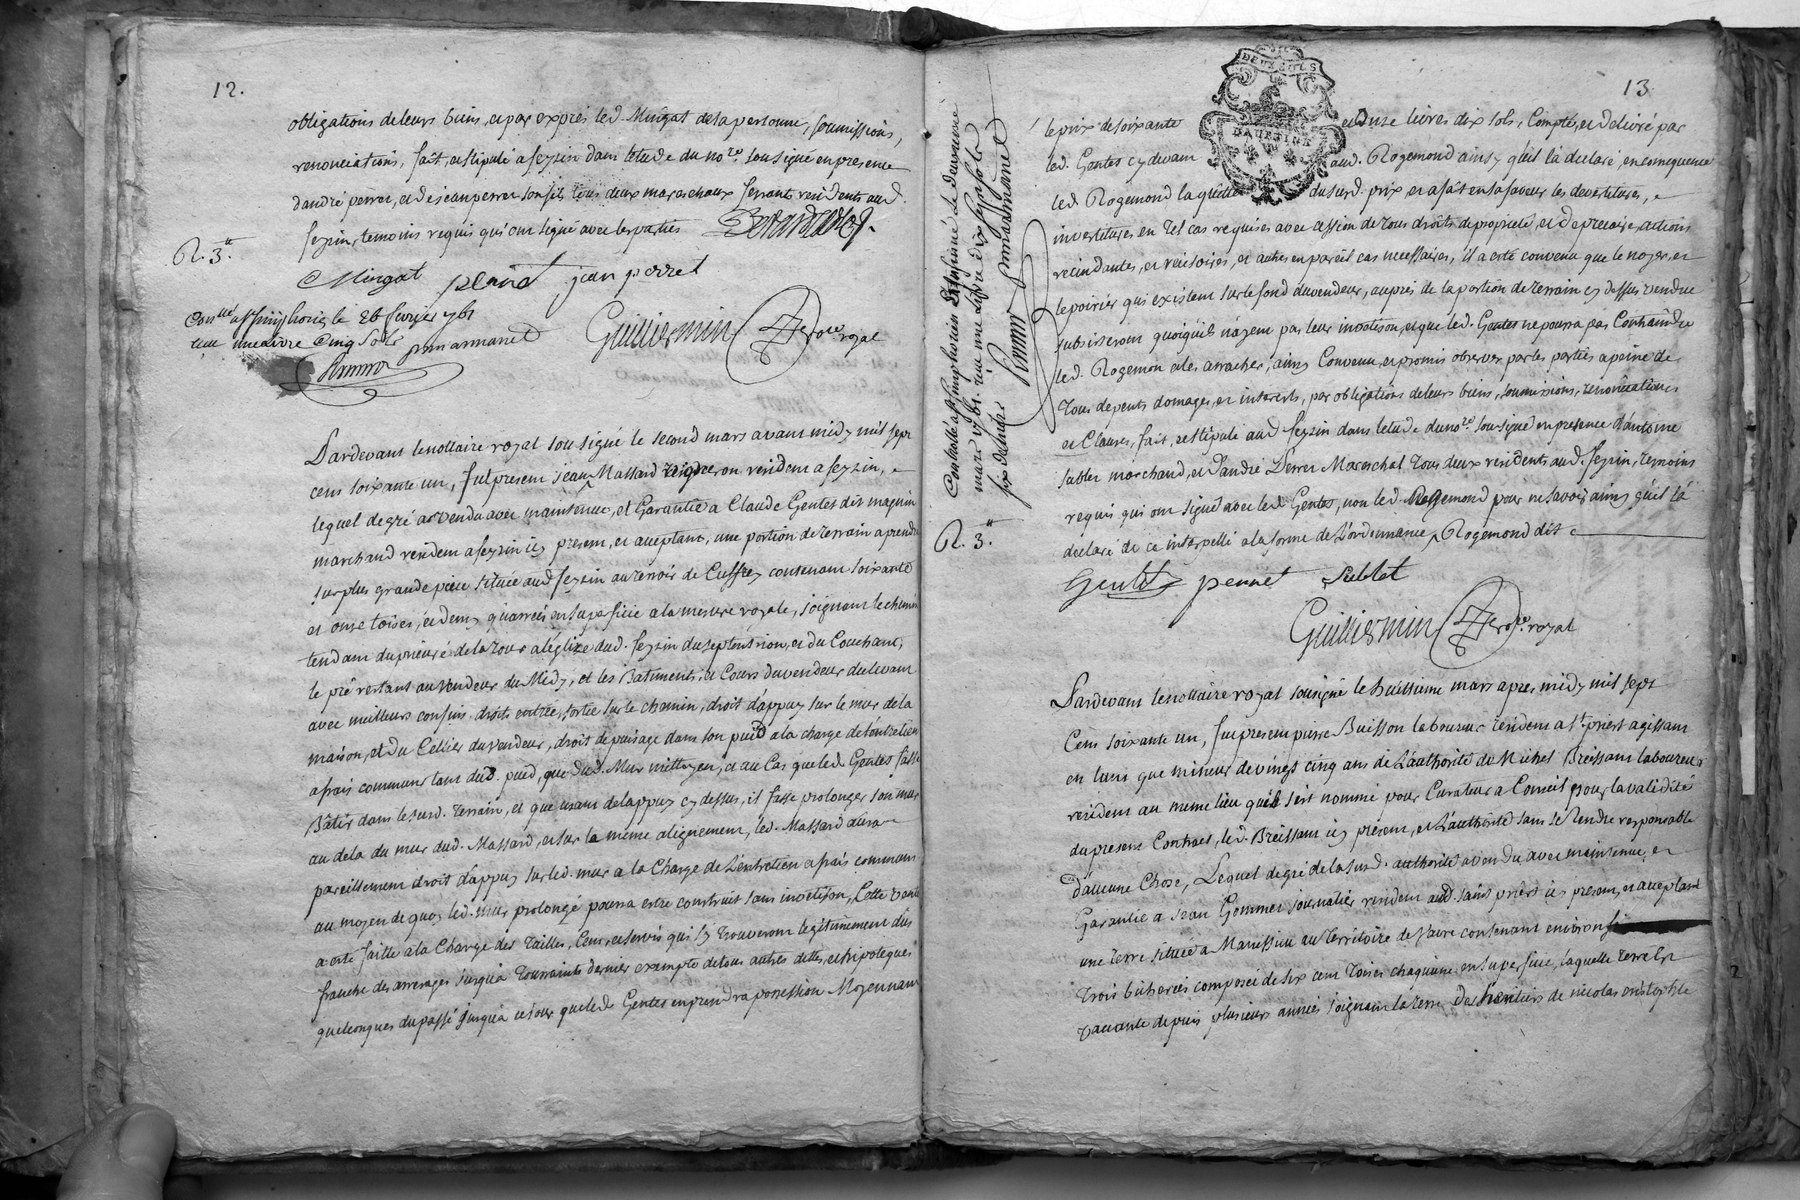 12.
obligations de leurs biens, et par exprés led. Mingat de sa personne, soumissions,
renonciations, fait, et stipulé a feyzin dans létude du no.re sousigné en presence
dandré perret, et de jean perret son fils tous deux marechaux ferrant residents aud.
feyzin, temoins requis qui ont signé avec les parties
R. 3.tt
Mingat perret jean perret
Con.llé a st simphorien le 26 fevrier 1761
reçu une livre cinq sols
Guilliermin no.re royal
Pardevant le nottaire royal sousigné le second mars avant midy mil sept
cens soixante un, fut present jean Massard vigneron resident a feyzin,
lequel de gré a vendu avec maintenue, et Garantie a Claude Gentes dit magnin
marchand resident a feyzin icy present, et acceptant, une portion de terrain a prendre
sur plus grande piece située aud. feyzin au terroir de Cuffrey contenant soixante
et onse toises, et demy quarrées en superficie a la mesure royale, joignant le chemin
tendant du prieuré de la tour a léglize dud. feyzin du septentrion, et du Couchant,
le pré restant au vendeur du Midy, et les Batiments, et Cours du vendeur du levant
avec meilleurs confins, droits entrée, sortie sur le chemin, droit dáppuy sur le mur de la
maison, et du Cellier du vendeur, droit de puisage dans son puid a la charge de léntretien
a frais communs tant dud. puid, que dud. Mur mittoyen, et au Cas que led. Gentes fasse
Bâtir dans le surd. terrain, et que usant de lappuy cy dessus, il fasse prolonger son mur
au dela du mur dud. Massard, et sur la même alignement, led. Massard aura
pareillement droit d'appuy sur led. mur a la Charge de L'entretien a frais communs
au moyen de quoy led. mur prolongé pourra estre construit sans inoetison, Cette vente
a esté faitte a la Charge des Tailles, Cens, et servis qui sy trouveront legitimement dus
franche des arrerages jusqu'a Toussaints dernier exempte de tous autres dettes, et hipoteques
quelconques du passé jusqu'a ce jour que led. Gentes en prendra possession Moyennant
13
le prix de soixante et onze livres dix sols, Compté, et delivré par
led. Gentes cy devant aud. Rogemond ainsy quil l'a declaré, en consequence
led. Rogemond la quitté du surd. prix, et a fait en sa faveur les devestitures,
investitures en tel cas requises avec cession de tous droits de proprieté, et de precaire, actions
recindantes, et recisoires, et autres en pareil cas necessaires, il a esté convenu que le noyer, et
le poirier qui existent sur le fond du vendeur, auprés de la portion de terrain cy dessus vendue
subsisteront quoiquils náyent pas leur inoetison, et que led. Gentes ne pourra pas Contraindre
led. Rogemon a les arracher, ainsy Convenu, et promis observer par les parties a peine de
tous depents domages, et interests, par obligations de leurs biens, soumissions, renonciations
et Clauses, fait, et stipulé aud. feyzin dans létude du no.re sousigné en presence d'antoine
sublet marchand, et d'andré Perret Marechal tous deux residents aud. feyzin, temoins
requis qui ont signé avec led. Gentes, non led. Rogemond pour ne savoir ainsy quil l'a
declaré de ce interpellé a la forme de L'ordonnance, Rogemond dit
R. 3.tt
Controllé a st simphorien le deuxieme
mars 1761. reçu une livre dix sept sols
six deniers
DEUX SOLS
DAUPHINE
Gentes perret Sublet
Guilliermin no.re royal
Pardevant le nottaire royal sousigné le huitieme mars apres midy mil sept
Cens soixante un, fut present pierre Buisson laboureur resident a st. priest agissant
en tant que mineur de vingt cinq ans de L'authorité de Michel Breissant laboureur
resident au meme lieu quil s'est nommé pour Curateur a Conseil pour la validité
du present Contract, led. Breissant icy present, et L'authorité sans se rendre responsable
d'aucune Chose, Lequel de gré de la surd. authorité a vendu avec maintenue, et
Garantie a Jean Gommet journalier resident aud. saint priest icy present, et acceptant
une terre située a Manissieu au territoire de favre contenant environ
trois bicherées composée de six cent toises chaquune, en superficie, laquelle terre est
vacante depuis plusieurs années joignant la terre des heritiers de nicolas cristophle